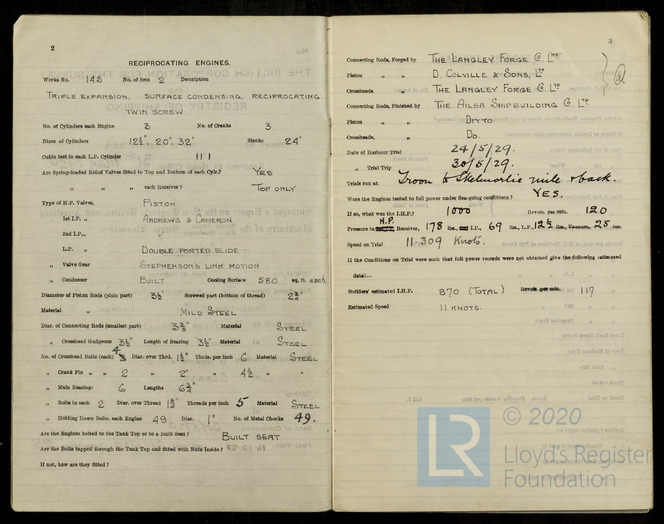 2
RECIPROCATING ENGINES.
Works No. 145 No. of Sets 2 Description
TRIPLE EXPANSION, SURFACE CONDENSING, RECIPROCATING
TWIN SCREW
No. of Cylinders each Engine 3 No. of Cranks 3
Diars. of Cylinders 12½", 20", 32" Stroke 24"
Cubic feet in each L.P. Cylinder 11'1
Are Spring-loaded Relief Valves fitted to Top and Bottom of each Cylr.? YES
" " " each Receiver? TOP ONLY
Type of H.P. Valves, PISTON
" 1st I.P. " ANDREWS & CAMERON
" 2nd I.P. "
" L.P. " DOUBLE PORTED SLIDE
" Valve Gear STEPHENSON'S LINK MOTION
" Condenser BUILT Cooling Surface 580 sq. ft. each
Diameter of Piston Rods (plain part) 3½" Screwed part (bottom of thread)
Material MILD STEEL
Diar. of Connecting Rods (smallest part) Material STEEL
" Crosshead Gudgeons 3½" Length of Bearing 3½" Material STEEL
No. of Crosshead Bolts (each) 4 Diar. over Thrd. 1½" Thrds. per inch 6 Material STEEL
" Crank Pin " " 2 " 2" " 4½ " "
" Main Bearings 6 Lengths 6¾"
" Bolts in each 2 Diar. over Thread Threads per inch 5 Material STEEL
" Holding Down Bolts, each Engine 49 Diar. 1" No. of Metal Chocks 49.
Are the Engines bolted to the Tank Top or to a Built Seat? BUILT SEAT
Are the Bolts tapped through the Tank Top and fitted with Nuts Inside?
If not, how are they fitted?
3
Connecting Rods, Forged by THE LANGLEY FORGE Co. LTD
Piston " " D. COLVILLE & SONS, LTD
Crossheads, " THE LANGLEY FORGE Co. LTD
Connecting Rods, Finished by THE AILSA SHIPBUILDING Co. LTD
Piston " " DITTO
Crossheads, " DO.
Date of Harbour Trial 24/5/29.
" Trial Trip 30/5/29.
Trials run at Troon to Skelmorlie mile & back.
Were the Engines tested to full power under Sea-going conditions? YES.
If so, what was the I.H.P.? 1000 Revols. per min. 120
Pressure in H.P. Receiver, 178 lbs., L.P. 69 lbs., L.P., 12½ lbs., Vacuum, 25 ins.
Speed on Trial 11.309 Knots.
If the Conditions on Trial were such that full power records were not obtained give the following estimated
data:—
Builders' estimated I.H.P. 870 (TOTAL) Revols. per min. 117
Estimated Speed 11 KNOTS.
LR
© 2020
Lloyd's Register
Foundation